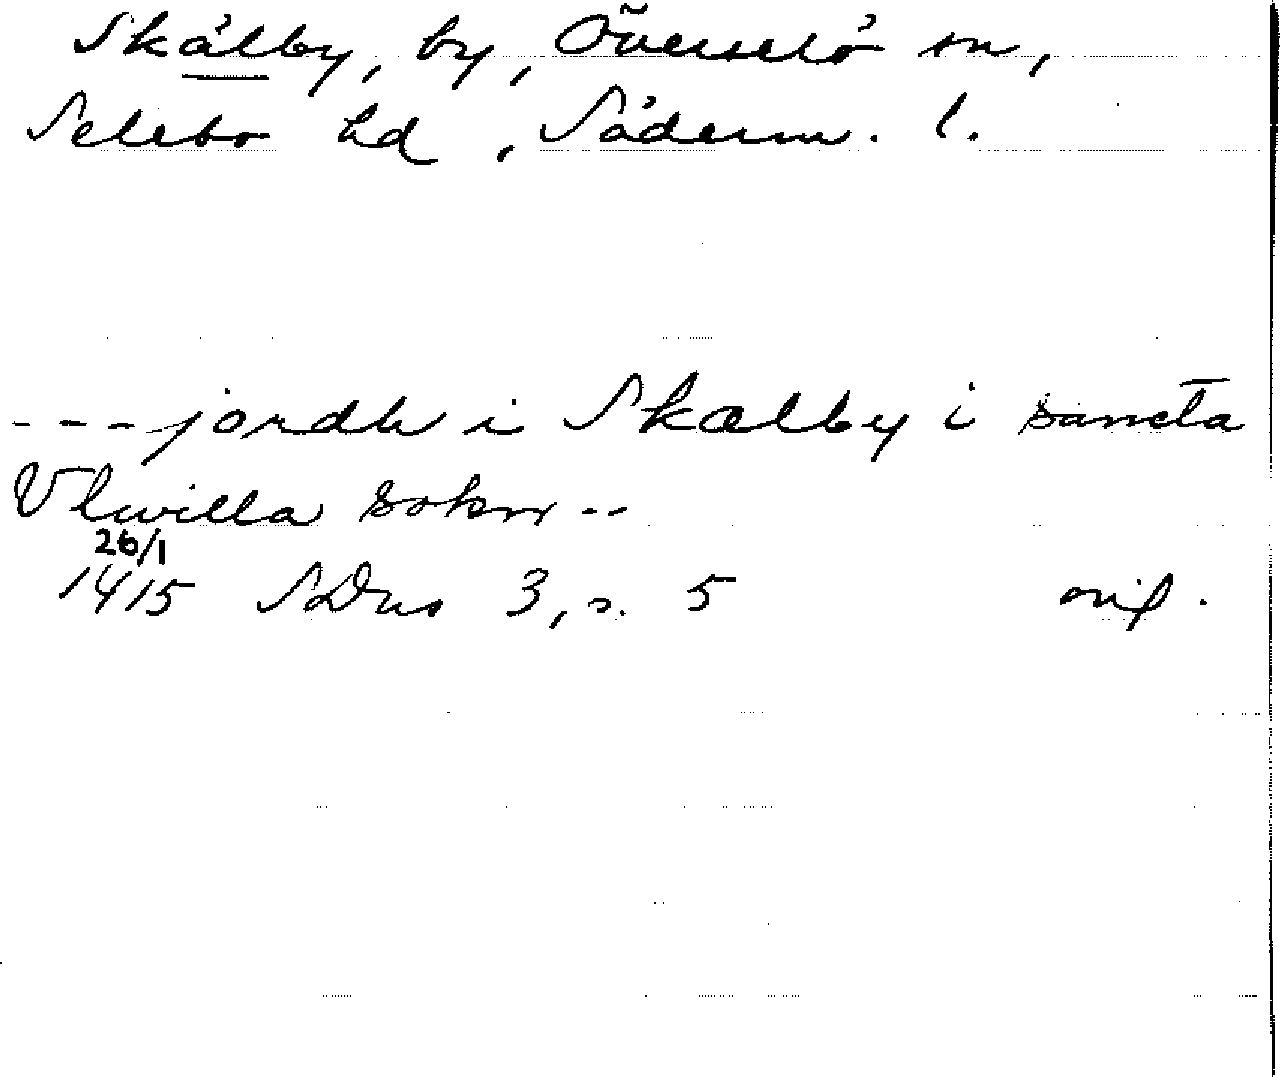 Skälby, by, Överselö sn,
Selebo hd, Söderm. l.
---jordh i Skælby i sancta
Vlwilla sokn --
26/1
1415 SDns 3, s. 5 orig.